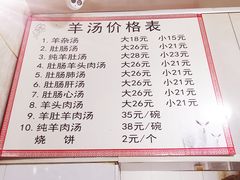 羊汤价格表
1. 羊杂汤 大18元 小15元
2. 肚肠汤 大26元 小21元
3. 纯羊肚汤 大28元 小23元
4. 肚肠羊头肉汤 大26元 小21元
5. 肚肠肺汤 大26元 小21元
6. 肚肠肝汤 大26元 小21元
7. 肚肠心汤 大26元 小21元
8. 羊头肉汤 大26元 小21元
9. 羊肚羊肉汤 35元/碗
10. 纯羊肉汤 38元/碗
烧饼 2元/个